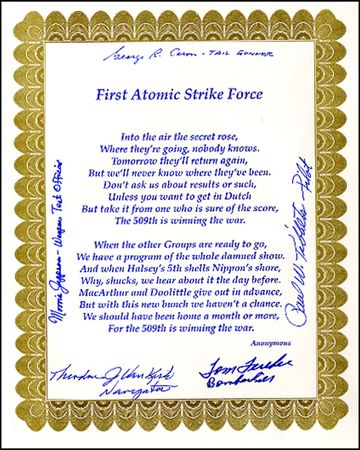 George R. Caron - TAIL GUNNER
First Atomic Strike Force
Into the air the secret rose,
Where they're going, nobody knows.
Tomorrow they'll return again,
But we'll never know where they've been.
Don't ask us about results or such,
Unless you want to get in Dutch
But take it from one who is sure of the score,
The 509th is winning the war.
When the other Groups are ready to go,
We have a program of the whole damned show.
And when Halsey's 5th shells Nippon's shore,
Why, shucks, we hear about it the day before.
MacArthur and Doolittle give out in advance,
But with this new bunch we haven't a chance.
We should have been home a month or more,
For the 509th is winning the war.
Anonymous
Morris Jeppson - Weapons Test Officer
Paul W. Tibbets Pilot
Theodore J Van Kirk
Navigator
Tom Ferebee
Bombardier